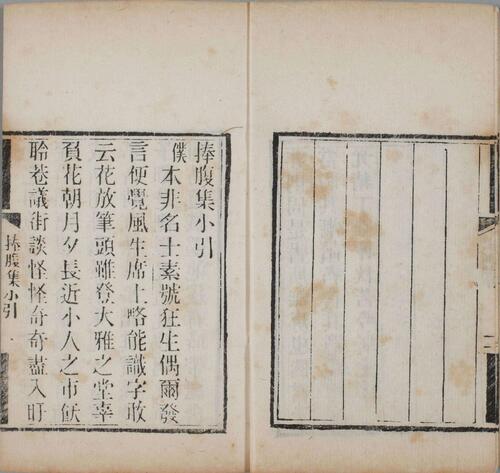 捧腹集小引
僕本非名士素號狂生偶爾發
言便覺風生席上略能識字敢
云花放筆頭雖登大雅之堂辜
負花朝月夕長近小人之市飫
聆巷議街談怪怪奇奇盡入盯
捧腹集小引
一
二